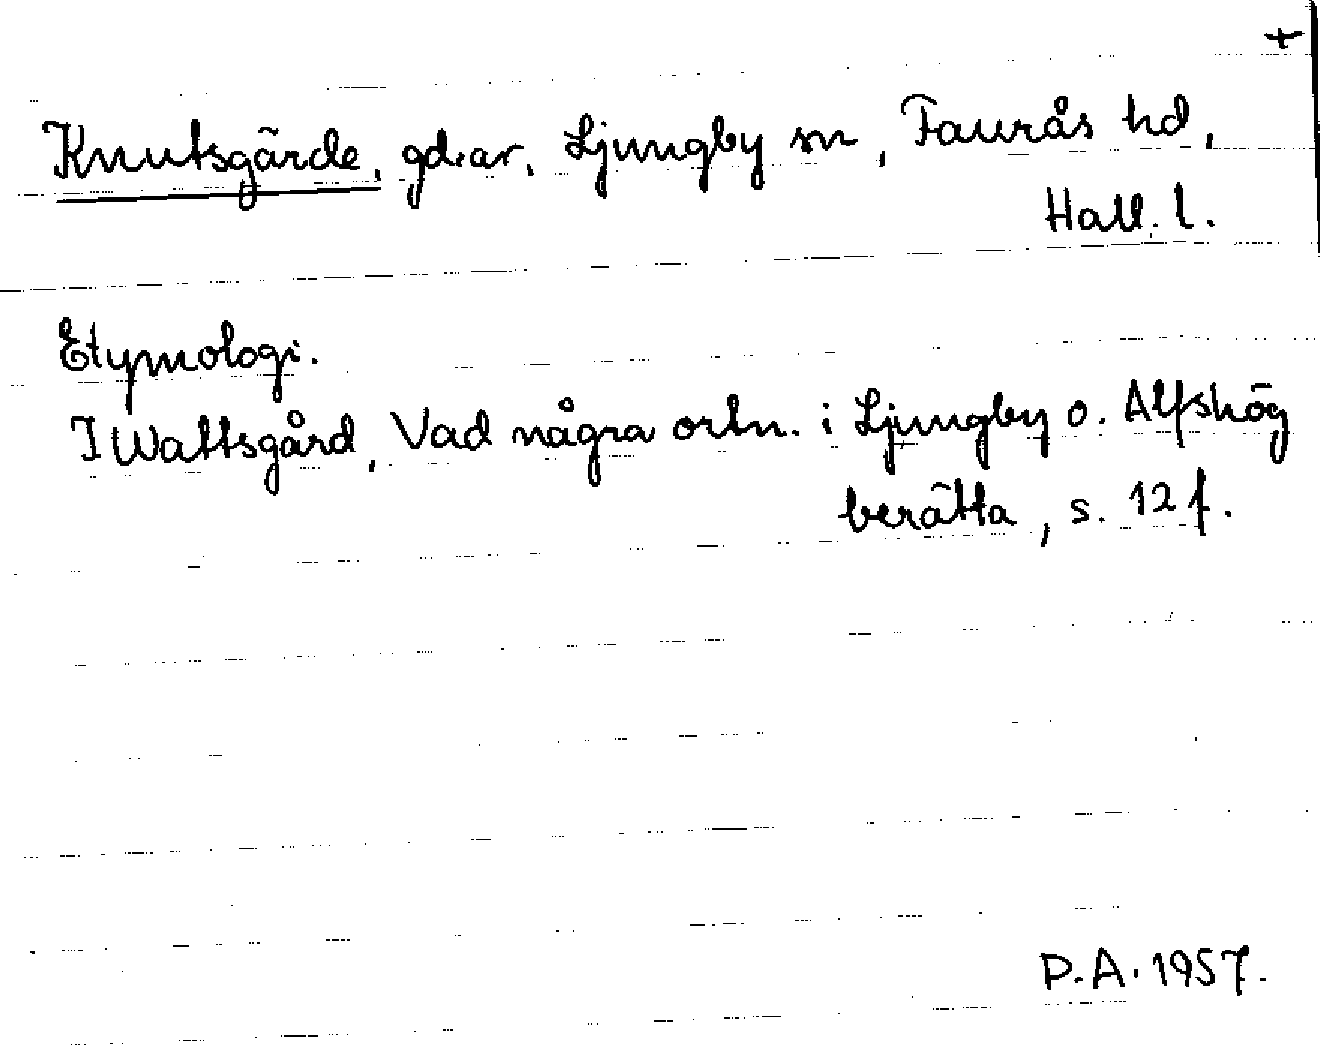 +
Knutsgärde, gd.ar, Ljungby sn, Faurås hd,
Hall. l.
Etymologi.
I Wattsgård, Vad några ortn. i Ljungby o. Alfshög
berätta, s. 12 f.
P.A. 1957.